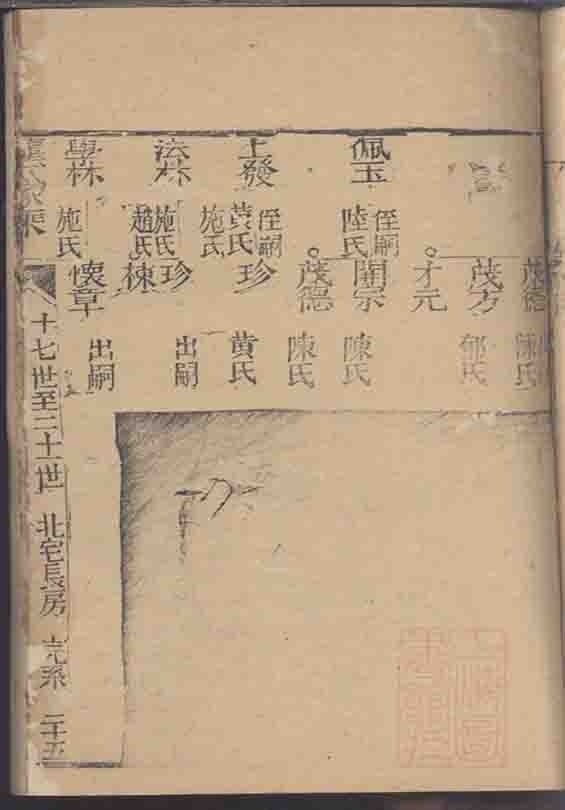 茂德
陳氏
茂方
郁氏
才元
佩玉
侄嗣
陸氏
開宗
陳氏
茂德
陳氏
上發
侄嗣
黃氏
珍
黃氏
施氏
法林
施氏
趙氏
珍
出嗣
棟
學林
施氏
懷章
出嗣
家乘
十七世至二十一世 北宅長房 系 二十五